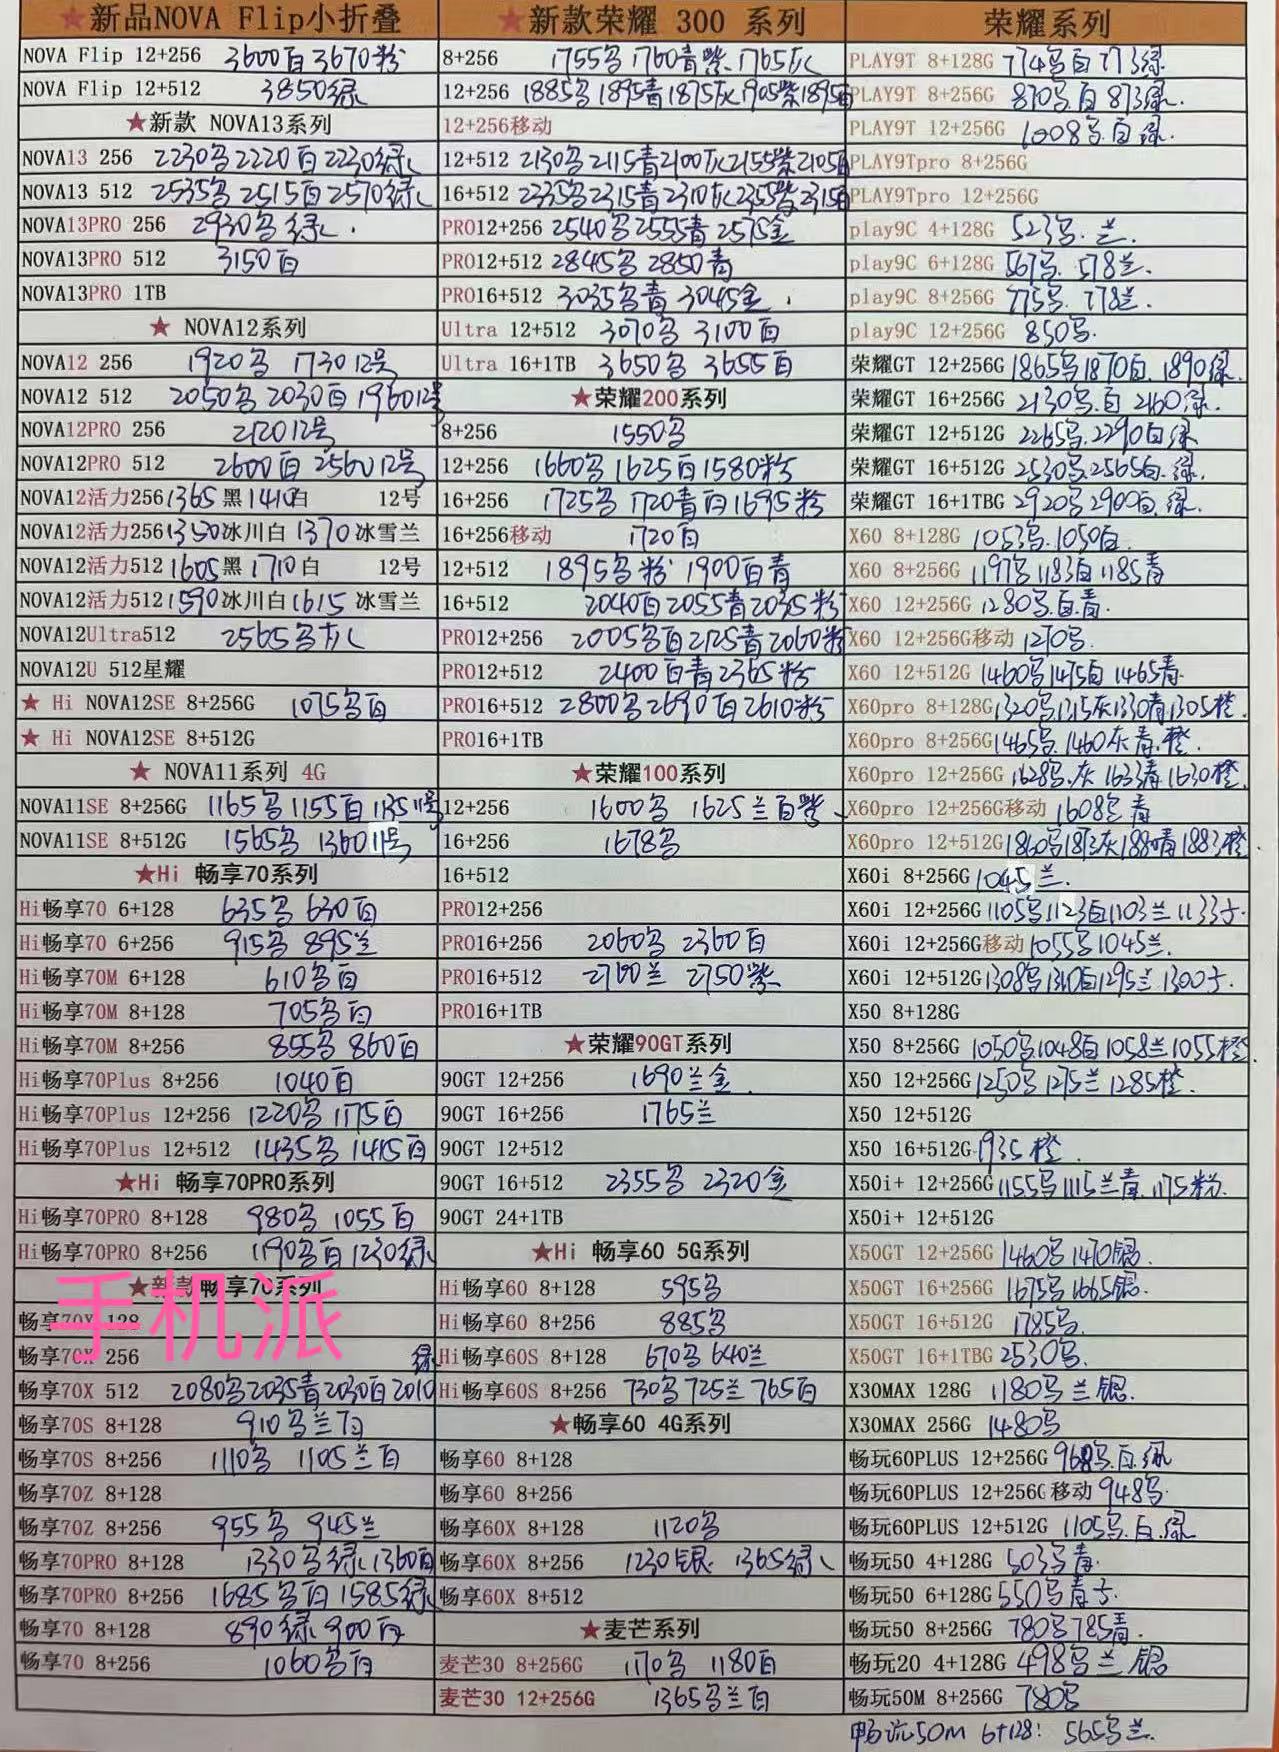 ★新品NOVA Flip小折叠
NOVA Flip 12+256 3600白3670粉
NOVA Flip 12+512 3850绿
★新款 NOVA13系列
NOVA13 256 2230名2220白2230绿
NOVA13 512 2535名2515白2570绿
NOVA13PRO 256 2930名绿.
NOVA13PRO 512 3150白
NOVA13PRO 1TB
★ NOVA12系列
NOVA12 256 1920名 1730 12号
NOVA12 512 2050名2030白1960 12号
NOVA12PRO 256 2120 12号
NOVA12PRO 512 2600白2560 12号
NOVA12活力256 1365黑1410白 12号
NOVA12活力256 1350冰川白 1370冰雪兰
NOVA12活力512 1605黑1710白 12号
NOVA12活力512 1590冰川白1615冰雪兰
NOVA12Ultra512 2565名灰
NOVA12U 512星耀
★ Hi NOVA12SE 8+256G 1075名白
★ Hi NOVA12SE 8+512G
★ NOVA11系列 4G
NOVA11SE 8+256G 1165名1155白1135 11号
NOVA11SE 8+512G 1565名 1360 11号
★Hi 畅享70系列
Hi畅享70 6+128 635名 630白
Hi畅享70 6+256 915名 895兰
Hi畅享70M 6+128 610名白
Hi畅享70M 8+128 705名白
Hi畅享70M 8+256 855名 860白
Hi畅享70Plus 8+256 1040白
Hi畅享70Plus 12+256 1220名 1175白
Hi畅享70Plus 12+512 1435名 1415白
★Hi 畅享70PRO系列
Hi畅享70PRO 8+128 980名 1055白
Hi畅享70PRO 8+256 1190名白1230绿
★新款畅享70系列
手机派
畅享70X 128
畅享70X 256 绿
畅享70X 512 2080名2035青2030白2010
畅享70S 8+128 910名兰白
畅享70S 8+256 1110名 1105兰白
畅享70Z 8+128
畅享70Z 8+256 955名 945兰
畅享70PRO 8+128 1330名绿1360白
畅享70PRO 8+256 1685名白1585绿
畅享70 8+128 890绿 900白
畅享70 8+256 1060名白
★新款荣耀 300 系列
8+256 1755名1760青紫1765灰
12+256 1885名1895青1875灰1905紫1895白
12+256移动
12+512 2130名2115青2100灰2155紫2105白
16+512 2335名2315青2310灰2355紫2315白
PRO12+256 2540名2555青2575金
PRO12+512 2845名2850青
PRO16+512 3035名青3045金.
Ultra 12+512 3070名 3100白
Ultra 16+1TB 3650名 3655白
★荣耀200系列
8+256 1550名
12+256 1660名1625白1580粉
16+256 1725名1720青白1695粉
16+256移动 1720白
12+512 1895名粉 1900白青
16+512 2040白2055青2035粉
PRO12+256 2005名白2125青2060粉
PRO12+512 2400白青2365粉
PRO16+512 2800名2690白2610粉
PRO16+1TB
★荣耀100系列
12+256 1600名 1625兰白紫
16+256 1678名
16+512
PRO12+256
PRO16+256 2060名 2360白
PRO16+512 2700兰 2750紫
PRO16+1TB
★荣耀90GT系列
90GT 12+256 1690兰金
90GT 16+256 1765兰
90GT 12+512
90GT 16+512 2355名 2320金
90GT 24+1TB
★Hi 畅享60 5G系列
Hi畅享60 8+128 595名
Hi畅享60 8+256 885名
Hi畅享60S 8+128 670名640兰
Hi畅享60S 8+256 730名725兰765白
★畅享60 4G系列
畅享60 8+128
畅享60 8+256
畅享60X 8+128 1120名
畅享60X 8+256 1230银 1365绿
畅享60X 8+512
★麦芒系列
麦芒30 8+256G 1170名 1180白
麦芒30 12+256G 1365名兰白
荣耀系列
PLAY9T 8+128G 774名白773绿
PLAY9T 8+256G 870名.白873绿.
PLAY9T 12+256G 1008名白绿.
PLAY9Tpro 8+256G
PLAY9Tpro 12+256G
play9C 4+128G 523名.兰.
play9C 6+128G 567名. 578兰.
play9C 8+256G 775名. 778兰.
play9C 12+256G 850名.
荣耀GT 12+256G 1865名1870白.1890绿.
荣耀GT 16+256G 2130名.白2160绿.
荣耀GT 12+512G 2265名.2290白绿
荣耀GT 16+512G 2530名2565白.绿.
荣耀GT 16+1TBG 2920名2900白.绿.
X60 8+128G 1053名.1050白.
X60 8+256G 1197名1183白1185青
X60 12+256G 1280名.白.青.
X60 12+256G移动 1270名.
X60 12+512G 1460名1475白1465青.
X60pro 8+128G 1320名1315灰1330青1305橙.
X60pro 8+256G 1465名.1460灰青.橙.
X60pro 12+256G 1628名.灰1633青1630橙.
X60pro 12+256G移动 1608名青
X60pro 12+512G 1860名1873灰1880青1883橙.
X60i 8+256G 1045兰.
X60i 12+256G 1105名1123白1103兰1133子.
X60i 12+256G移动 1055名1045兰.
X60i 12+512G 1308名1310白1295兰1300子.
X50 8+128G
X50 8+256G 1050名1048白1058兰1055橙
X50 12+256G 1250名1275兰1285橙.
X50 12+512G
X50 16+512G 1935橙.
X50i+ 12+256G 1155名1115兰青.1175粉.
X50i+ 12+512G
X50GT 12+256G 1460名1470银.
X50GT 16+256G 1675名1665银.
X50GT 16+512G 1785名.
X50GT 16+1TBG 2530名.
X30MAX 128G 1180名兰银.
X30MAX 256G 1480名
畅玩60PLUS 12+256G 968名.白.绿
畅玩60PLUS 12+256G移动 948名.
畅玩60PLUS 12+512G 1105名.白.绿
畅玩50 4+128G 503名青.
畅玩50 6+128G 550名青子.
畅玩50 8+256G 780名785青.
畅玩20 4+128G 498名兰 银
畅玩50M 8+256G 780名
畅玩50M 6+128: 565名兰.